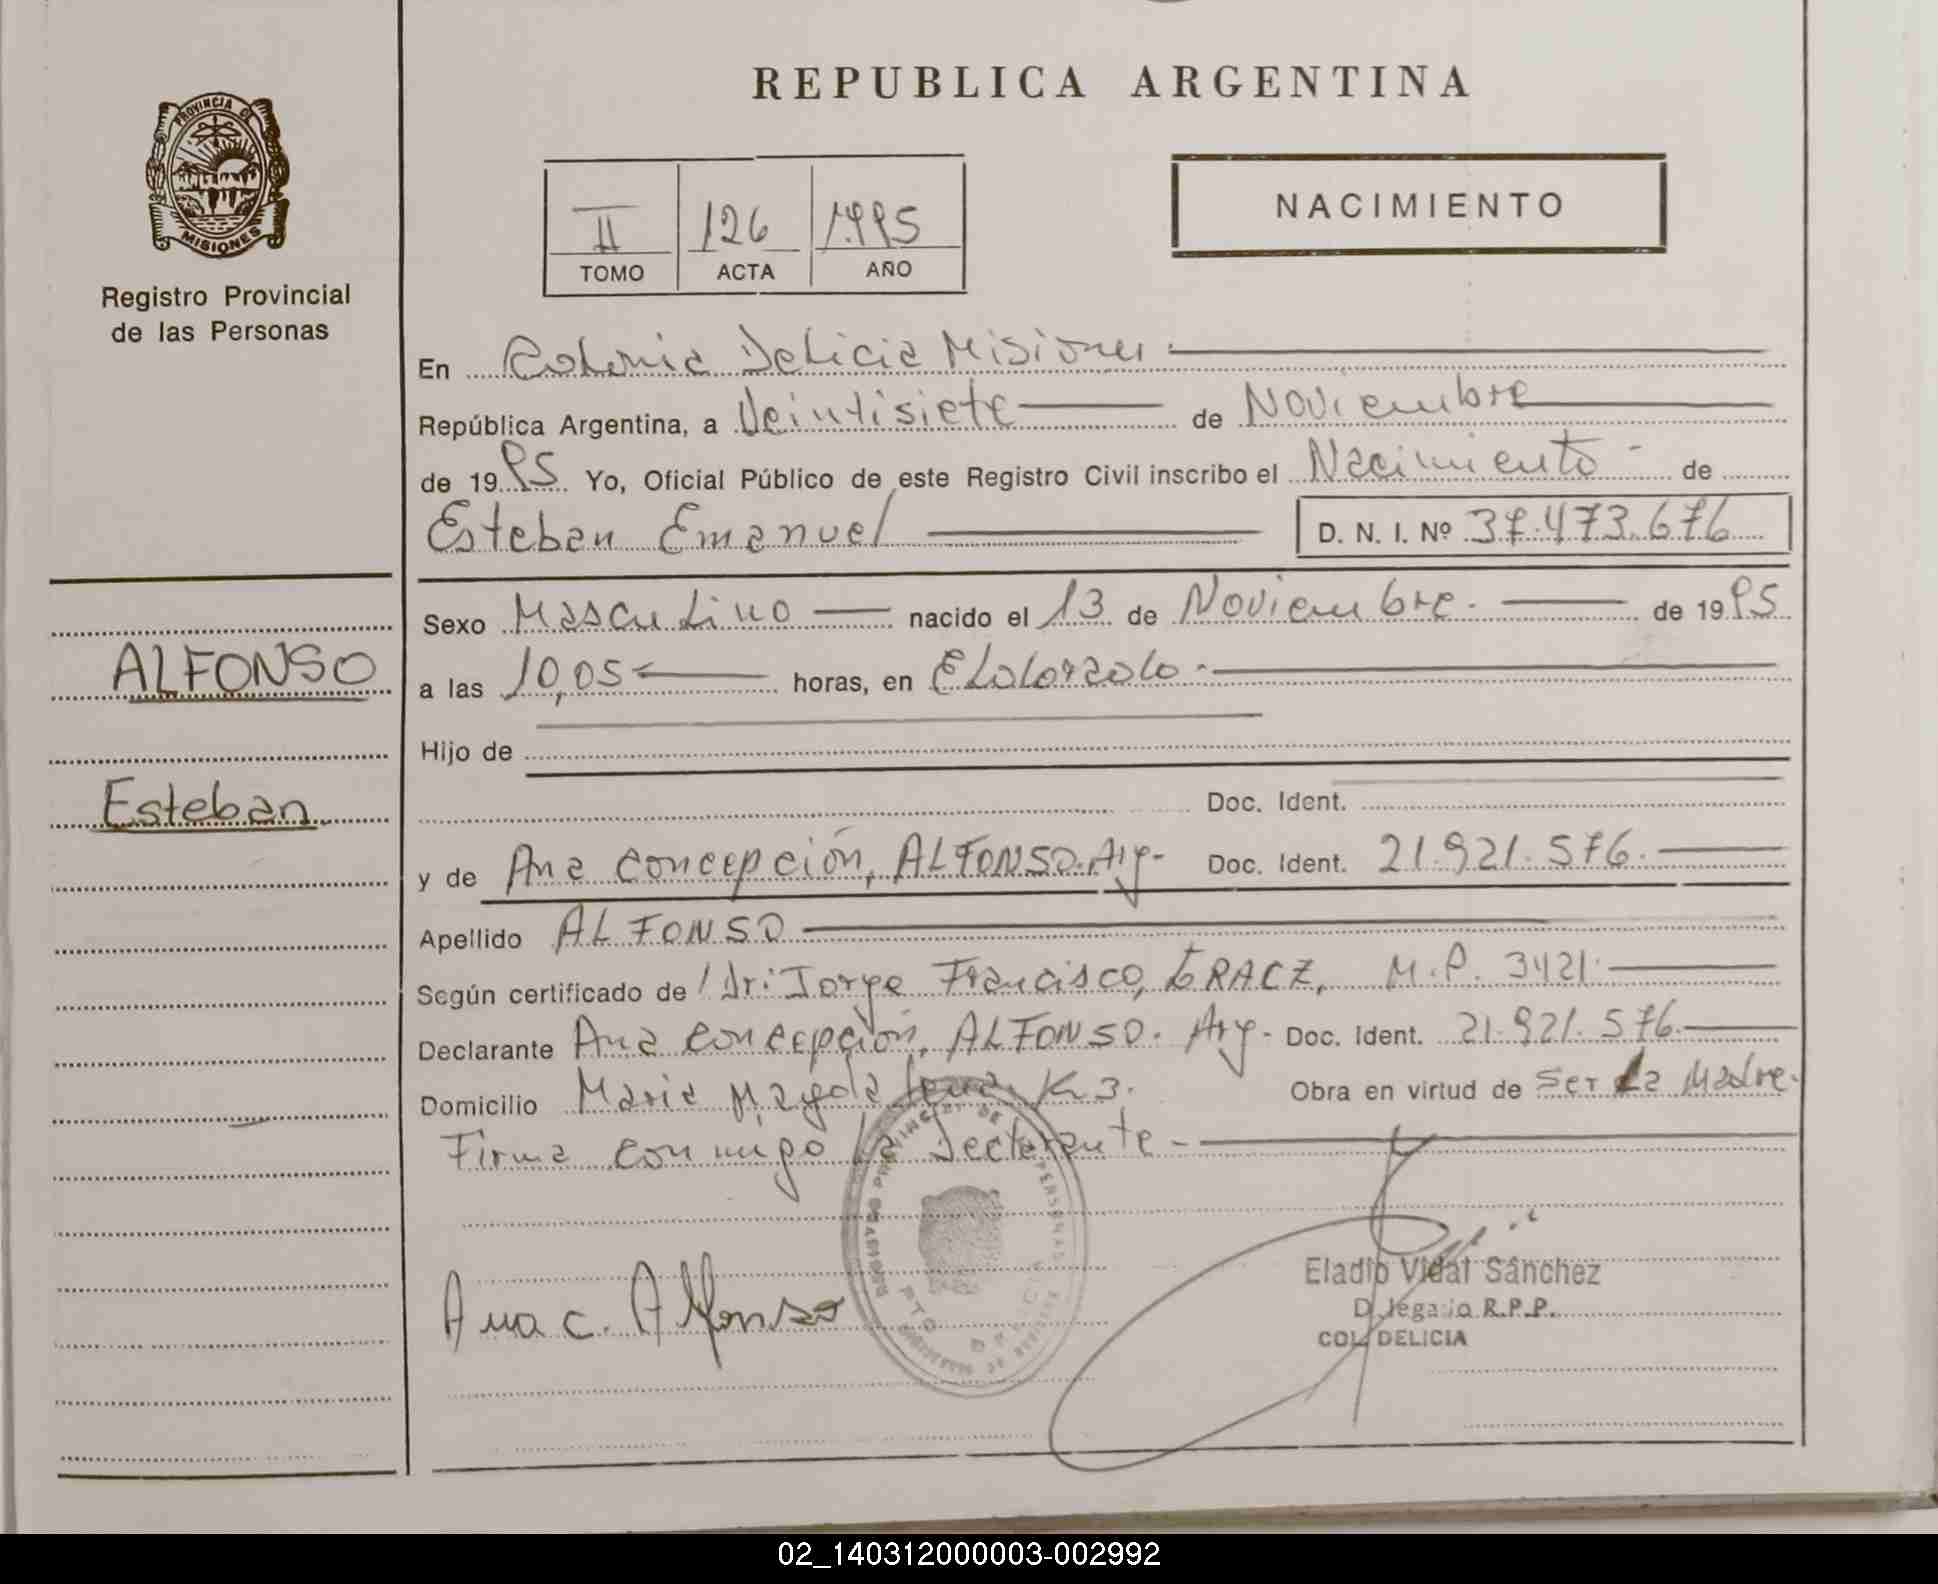 REPUBLICA ARGENTINA
PROVINCIA DE
MISIONES
Registro Provincial
de las Personas
II 126 1995
TOMO ACTA AÑO
NACIMIENTO
En Colonia Delicia Misiones
República Argentina, a Veintisiete de Noviembre
de 1995 Yo, Oficial Público de este Registro Civil inscribo el Nacimiento de
Esteban Emanuel D. N. I. Nº 37.473.676
Sexo Masculino nacido el 13 de Noviembre. de 1995
ALFONSO
a las 10,05 horas, en Eldorado
Hijo de
Esteban
Doc. Ident.
y de Ana Concepción, ALFONSO. Arg- Doc. Ident. 21.921.576.
Apellido ALFONSO
Según certificado de Dr: Jorge Francisco, M.P. 3421
Declarante Ana Concepción, ALFONSO. Arg- Doc. Ident. 21.921.576.
Domicilio Maria Magdalena K 3. Obra en virtud de ser La Madre.
Firma conmigo la declarante-
Ana C. Alfonso
Eladio Vidal Sánchez
Delegado R.P.P.
COL. DELICIA
02_140312000003-002992